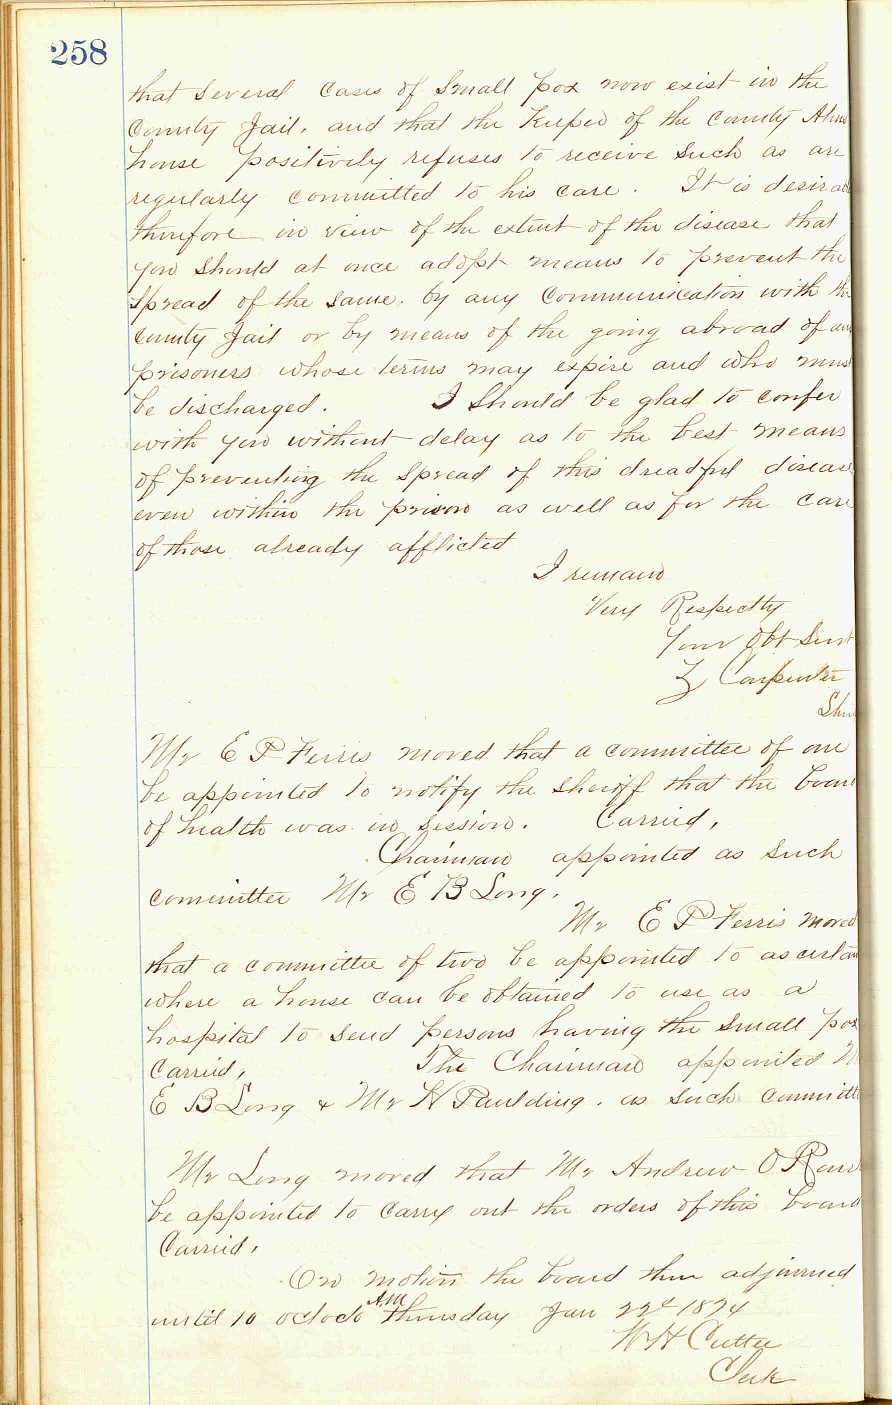 258
that several cases of Small pox now exist in the
County Jail, and that the Keeper of the County Alms
house positively refuses to receive such as are
regularly committed to his care. It is desirab
therefore in view of the extent of the disease that
you should at once adopt means to prevent the
spread of the same, by any communication with the
County Jail or by means of the going abroad of any
prisoners whose terms may expire and who must
be discharged. I should be glad to confer
with you without delay as to the best means
of preventing the spread of this dreadful disease
even within the prison as well as for the care
of those already afflicted
I remain
Very Respectly
Your Obt Servt
Z Carpenter
Sheri
Mr E P Ferris moved that a committee of one
be appointed to notify the Sheriff that the board
of health was in session. Carried,
Chairman appointed as such
committee Mr E B Long.
Mr E P Ferris moved
that a committee of two be appointed to ascertain
where a house can be obtained to use as a
hospital to send persons having the small pox
Carried, The Chairman appointed M
E B Long & Mr H Paulding. as such committe
Mr Long moved that Mr Andrew O
be appointed to carry out the orders of this board
Carried,
On motion the board then adjourned
until 10 oclock A.M thursday Jan 22d 1874
W H Cutter
Clerk